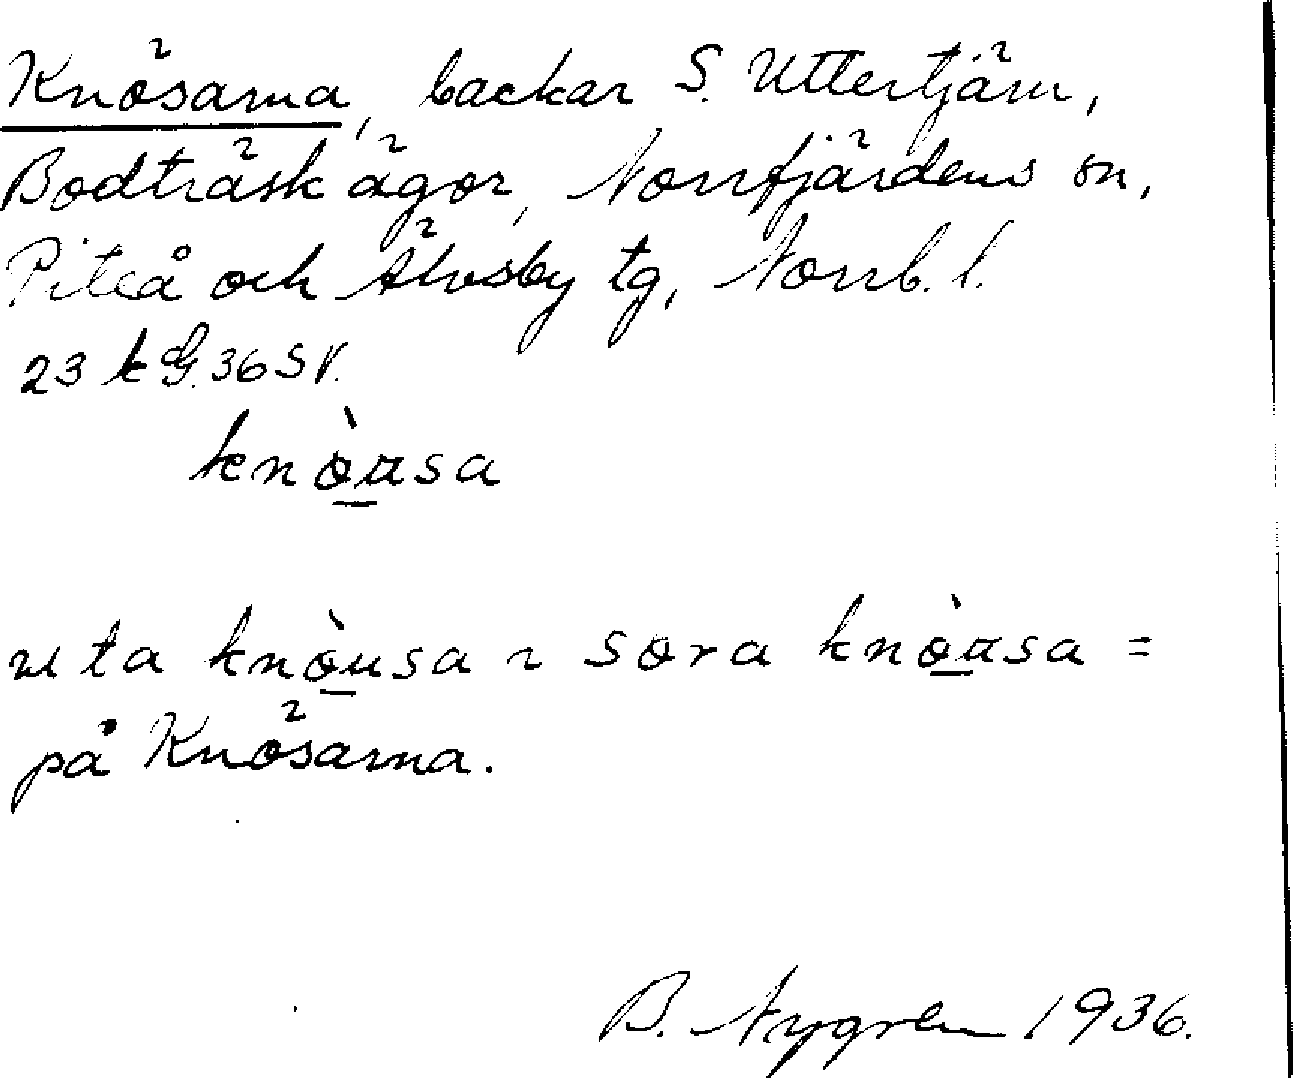 Knösarna, backar S. Uttertjärn,
Bodträsk ägor, Norrfjärdens sn,
Piteå och Älvsby tg, Norrb. l.
23 k G. 36 SV.
knòu̠sa
uta knòu̠sa ~ sora knòu̠sa =
på Knösarna.
B. Nygren 1936.